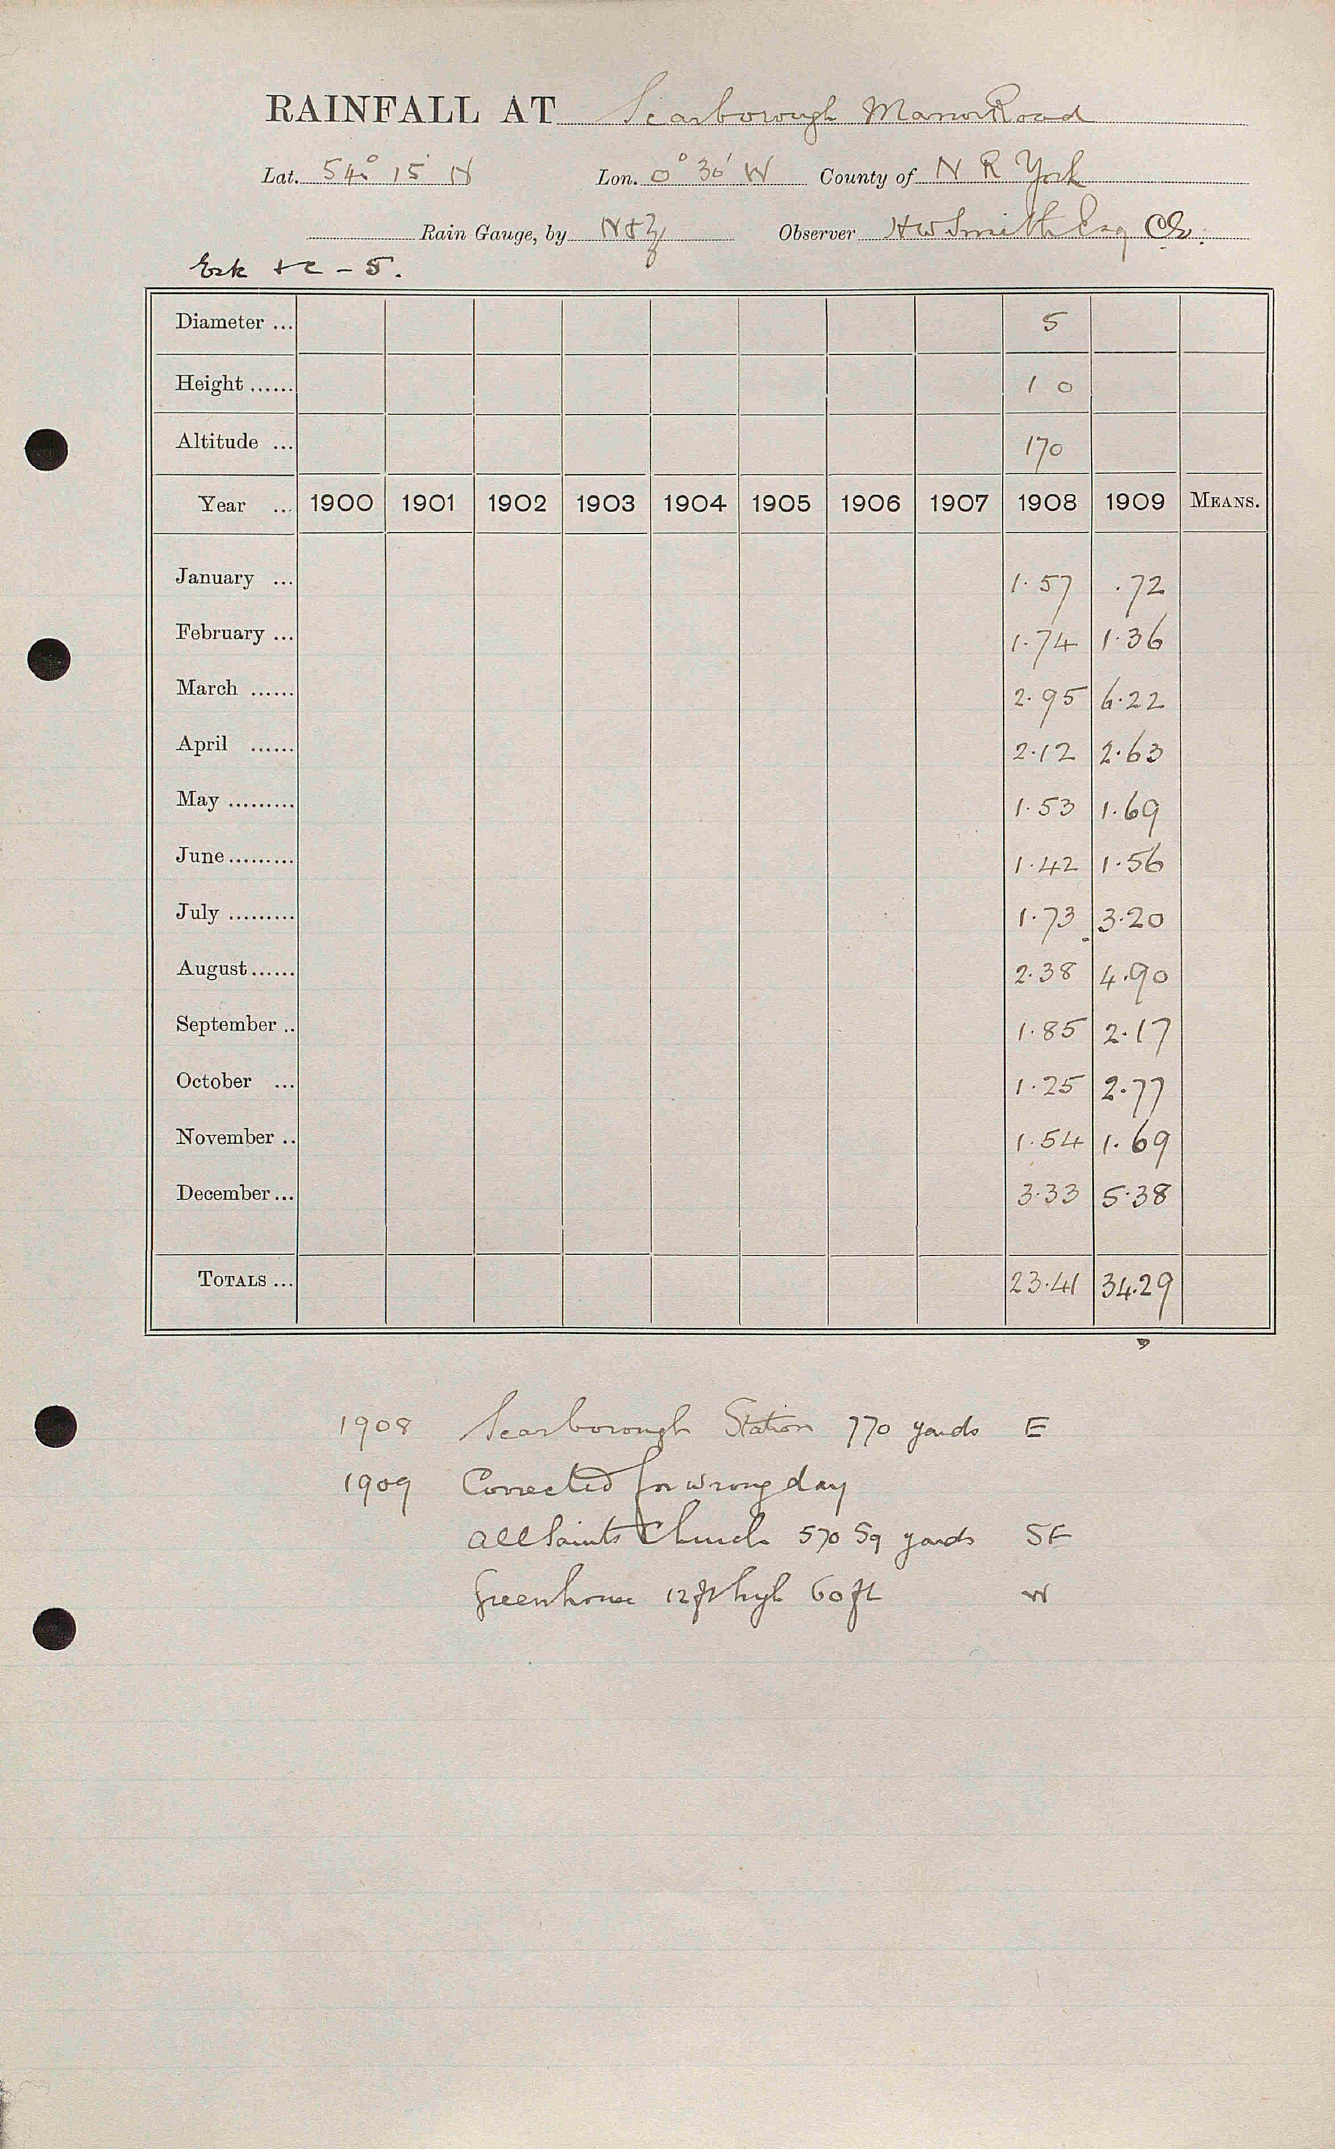 RAINFALL AT Scarborough Manor Road
Lat. 54° 15' N Lon. 0° 30' W County of N R York
Rain Gauge, by N & Z Observer H W Smith Esq CE.
Esk &c - 5.
Diameter ... 5
Height ...... 1 0
Altitude ... 170
Year ... 1900 1901 1902 1903 1904 1905 1906 1907 1908 1909 MEANS.
January ... 1.57 .72
February ... 1.74 1.36
March ...... 2.95 6.22
April ...... 2.12 2.63
May ......... 1.53 1.69
June ......... 1.42 1.56
July ......... 1.73 3.20
August ...... 2.38 4.90
September .. 1.85 2.17
October ... 1.25 2.77
November .. 1.54 1.69
December ... 3.33 5.38
TOTALS ... 23.41 34.29
1908 Scarborough Station 770 yards E
1909 Corrected for wrong day
All Saints Church 570 Sq yards SE
Greenhouse 12 ft high 60 ft W